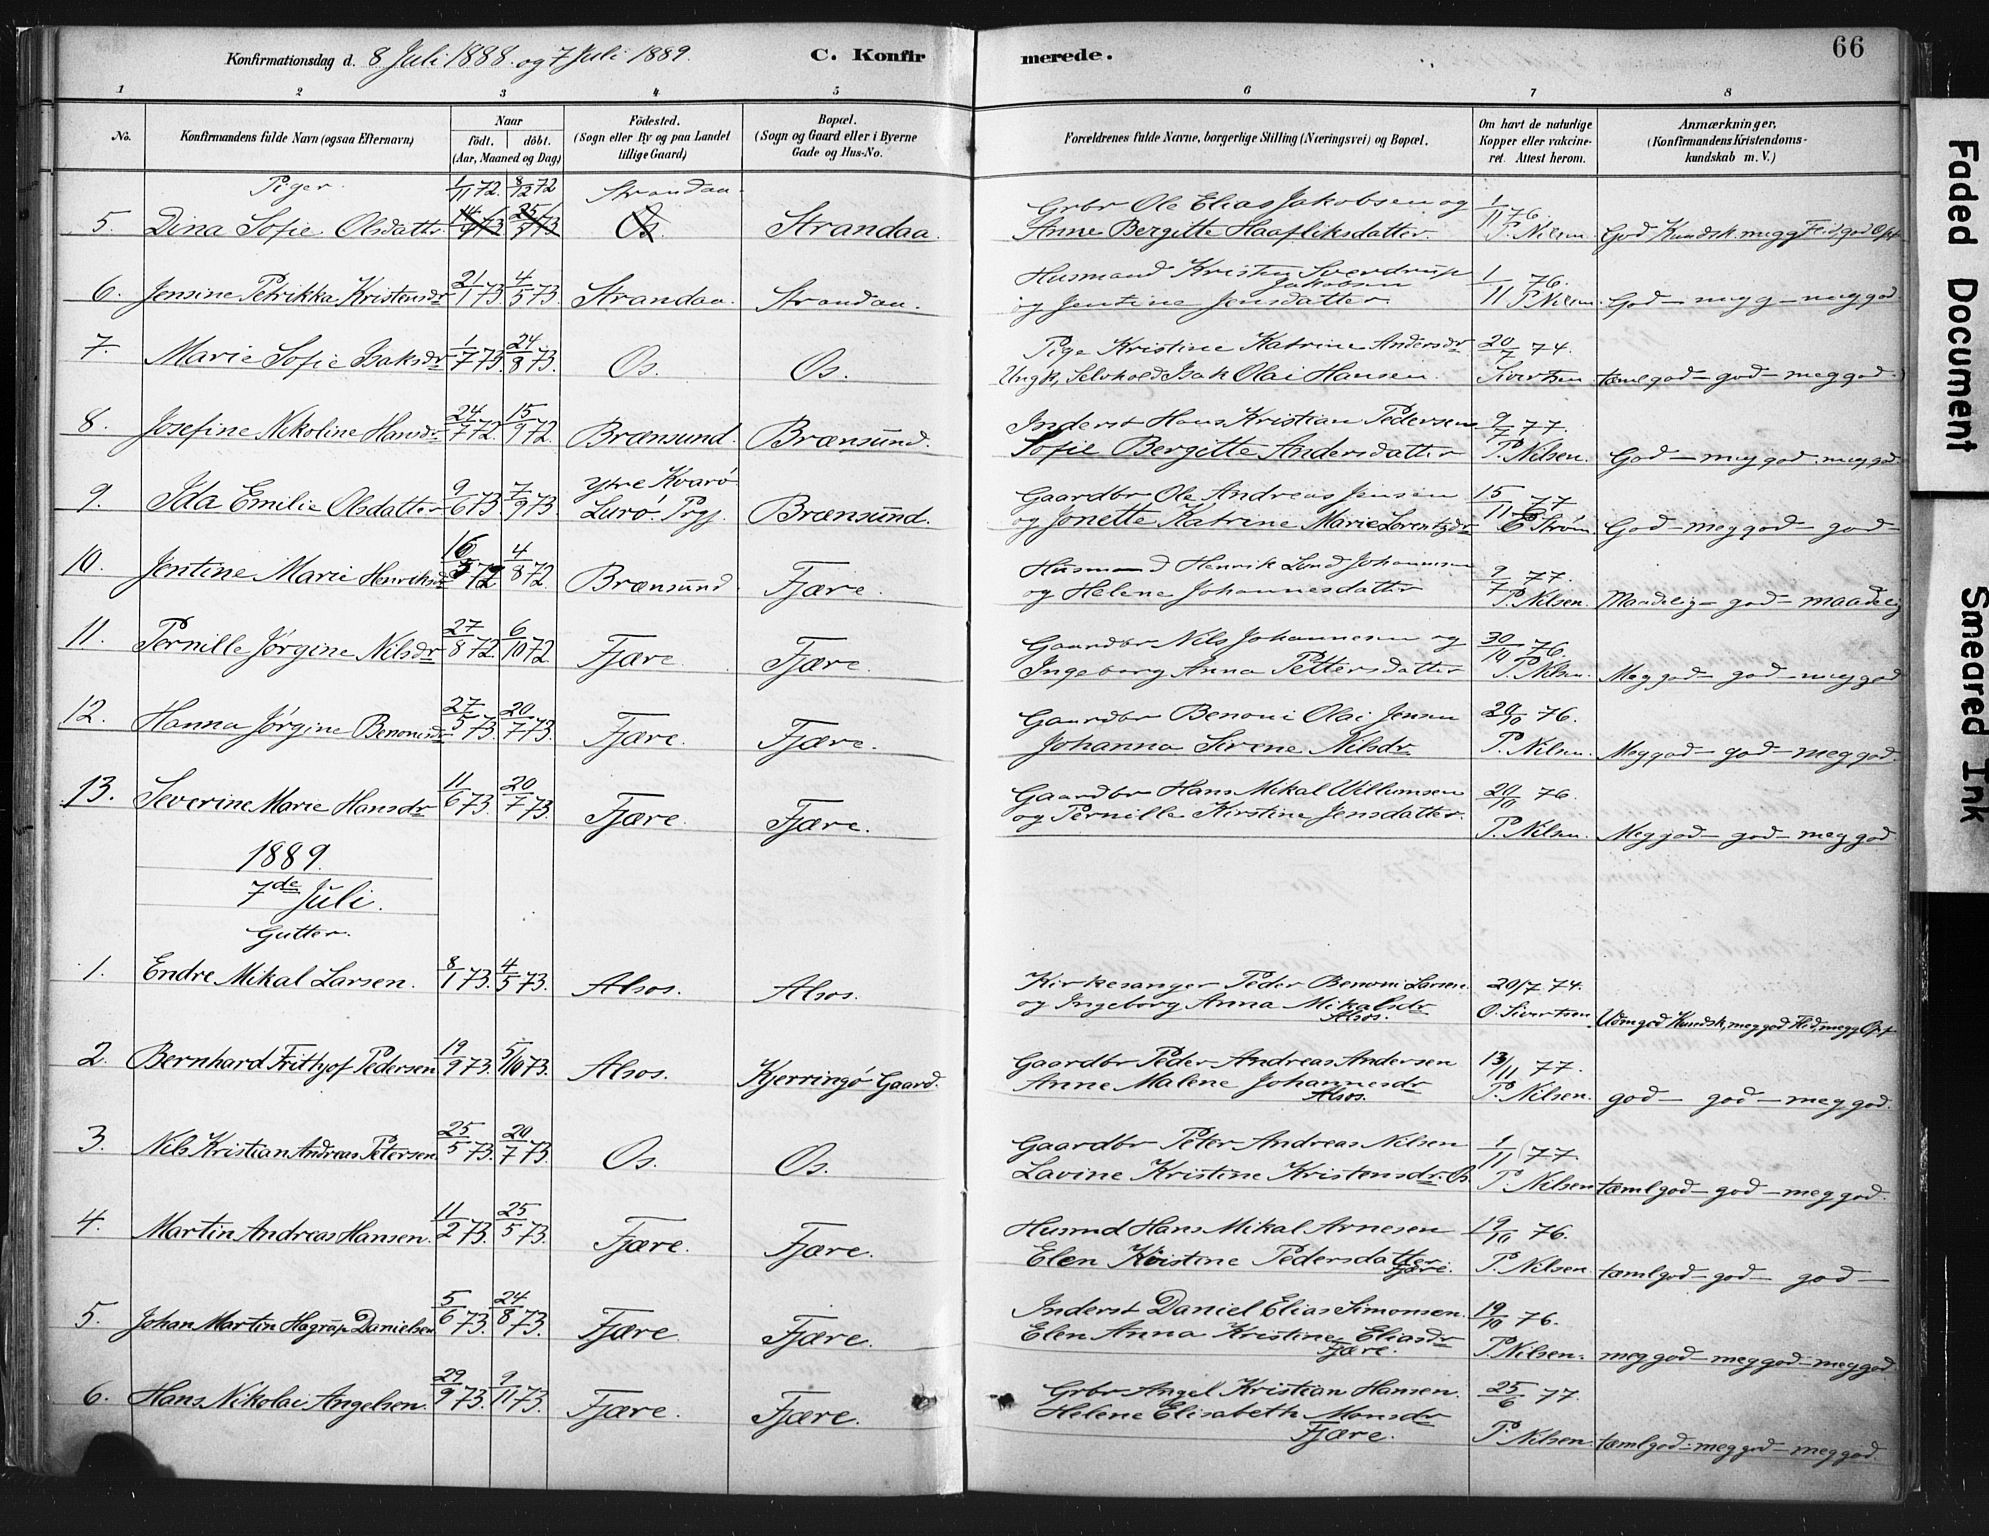 Konfirmationsdag d. 8 Juli 1888. og 7 Juli 1889. C. Konfirmerede. 66
1 2 3 4 5 6 7 8
No. Konfirmandens fulde Navn (ogsaa Efternavn) Naar födt. döbt. (Aar, Maaned og Dag) Födested. (Sogn eller By og paa Landet tillige Gaard) Bopæl. (Sogn og Gaard eller i Byerne Gade og Hus-No. Forældrenes fulde Navne, borgerlige Stilling (Næringsvei) og Bopæl. Om havt de naturlige Kopper eller vakcineret. Attest herom. Anmærkninger. (Konfirmandens Kristendomskundskab m. V.)
Piger. 1/11 72. 8/12 72 Strandaa
5. Dina Sofie Olsdatter Os. Strandaa. Grbr Ole Elias Jakobsen og 1/11 76.
Anne Bergitte Haafliksdatter P. Nilsen God Kundsk. megg Flid, god Opf
6. Jensine Petrikka Kristensdr 21/1 73. 4/5 73. Strandaa. Strandaa. Husmand Kristen Sverdrup Jakobsen 1/11 76.
og Jentine Jensdatter P. Nilsen. God – meg g – meg god
7. Marie Sofie Isaksdr 1/7 73. 24/8 73. Os. Os. Pige Kristine Katrine Andersdr 20/7 74.
Ungk, Selvhold Isak Olai Hansen. Sivertsen tæml god – god – meg god.
8. Josefine Nikoline Hansdr 24/7 72. 15/9 72. Brænsund. Brænsund. Inderst Hans Kristian Pedersen 9/7 77.
Sofie Bergitte Andersdatter P. Nilsen. God – meg god. meg god.
9. Ida Emilie Olsdatter 9/6 73. 7/9 73 Ytre Kvarø Lurø Prgj. Brænsund. Gaardbr Ole Andreas Jensen 15/11 77
og Jonette Katrine Marie Lorentzdr Strøm God – meg god – god –
10. Jentine Marie Henriksdr 16/5 72 4/8 72 Brænsund. Fjære. Husmand Henrik Lund Johannsen 9/7 77.
og Helene Johannesdatter P. Nilsen. Maadelig – god – maadelig
11. Pernille Jørgine Nilsdr 27/8 72. 6/10 72. Fjære. Fjære. Gaardbr Nils Johannesen og 30/10 76.
Ingeborg Anna Pettersdatter P. Nilsen. Meg god – god – meg god
12. Hanna Jørgine Benonisdr 27/5 73. 20/7 73. Fjære. Fjære. Gaardbr Benoni Olai Jensen 20/10 76.
Johanna Sirene Nilsdr P. Nilsen. Meg god – god – meg god.
13. Severine Marie Hansdr 11/6 73. 20/7 73. Fjære. Fjære. Gaardbr Hans Mikal Willumsen 20/10 76.
og Pernille Kirstine Jensdatter. P. Nilsen. Meg god – god – meg god
1889.
7de Juli.
Gutter.
1. Endre Mikal Larsen. 8/1 73. 4/5 73. Alsos. Alsos. Kirkesanger Peder Benoni Larsen 20/7 74.
og Ingeborg Anna Mikalsdr Alsos. O. Sivertsen Udm god Kundsk, meg god Flid, megg Opf
2. Bernhard Frithjof Pedersen 19/9 73. 5/10 73. Alsos. Kjerringø Gaard. Gaardbr Peder Andreas Andersen 13/11 77.
Anne Malene Johannesdr Alsos. P. Nilsen. god – god – meg god.
3. Nils Kristian Andreas Petersen 25/5 73. 20/7 73. Os. Os. Gaardbr Peter Andreas Nilsen 1/11 77.
Lavine Kristine Kristensdr. Os P. Nilsen tæml god – god – meg god.
4. Martin Andreas Hansen. 11/2 73. 25/5 73. Fjære. Fjære. Husmd Hans Mikal Arnesen 19/10 76.
Elen Kristine Pedersdatter Fjære. P. Nilsen. tæml god – god – god –
5. Johan Martin Hagrup Danielsen 5/6 73. 24/8 73. Fjære. Fjære. Inderst Daniel Elias Simonsen. 19/10 76.
Elen Anna Kristine Eliasdr Fjære. P. Nilsen. meg god – meg god – meg god
6. Hans Nikolai Angelsen. 29/9 73. 9/11 73. Fjære. Fjære. Grbr Angel Kristian Hansen. 25/6 77.
Helene Elisabeth Monsdr Fjære. P. Nilsen. tæml god – meg god – meg god.
Faded Document
Smeared Ink